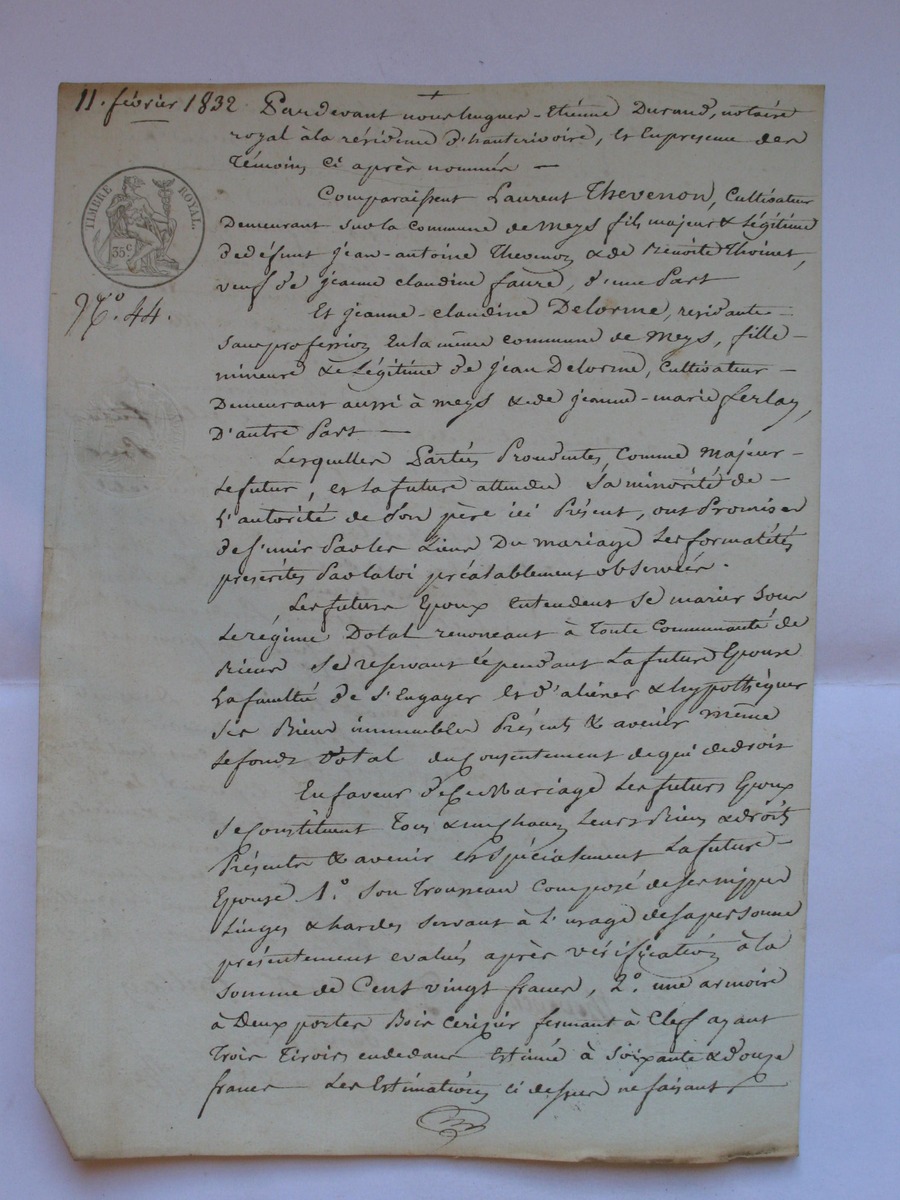 11. février 1832
Pardevant nous hugues-Etiénne Durand, notaire
royal à la résidense d'hauterivoire, Et En presense des
Témoins Ci après nommés —
TIMBRE ROYAL.
35c
Comparaissent Laurent Thevenon, Cultivateur
Demeurant sur la commune de Meys fils majeur & Légitime
de défunt jean-antoine Thevenon & de Benoite Thoinet,
veuf de jeanne claudine faure, d'une Part
N.º 44.
Et jeanne-claudine Delorme, résidante
Sans profession En la même commune de Meys, fille
mineure & Légitime de jean Delorme, Cultivateur
Demeurant aussi à meys & de jeanne-marie ferlay,
D'autre Part —
Lesquelles Parties Procédantes Comme Majeur
Le futur, et la future attendu Sa minorité de
L'autorité de Son père ici Présent, ont Promis
de S'unir Par les Liens Du mariage Les formalités
prescrites Par la loi préalablement observées.
Les futurs Epoux Entendent Se marier Sous
Le régime Dotal renonçant à Toute Communauté de
Biens Se réservant Cépendant La future Epouse
La faculté de S'Engager Et d'aliéner & hypothéquer
Ses Biens immeubles Présents & avenir même
Le fonds Dotal du Consentement de qui de droit
En faveur de Ce Mariage Les futurs Epoux
Se Constituent Tous & un Chacun Leurs Biens & droits
Présents & avenir et Spécialement La future
Epouse 1.º Son Trousseau Composé de Ses nippes
Linges & hardes Servant à L'usage de sa personne
présentement evalués après vérification à la
Somme de Cent vingt francs, 2.º une armoire
à Deux portes Bois Cerisier fermant à Clef ayant
Trois Tiroirs en dedans Estimée à Soixante & Douze
francs — Les Estimations ci dessus ne faisant